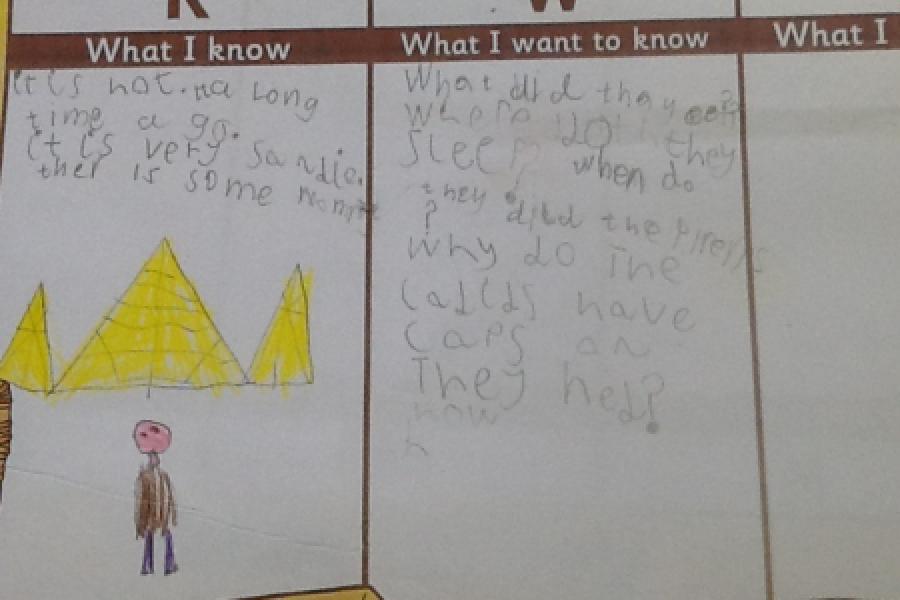 K
W
What I know
What I want to know
What I
It is hot. na Long
time a go.
it is very Sandie.
ther is some
What did thay eat?
Where do they
Sleep? when do
they dibd the
?
Why do The
have
caps on
They hed?
how
h